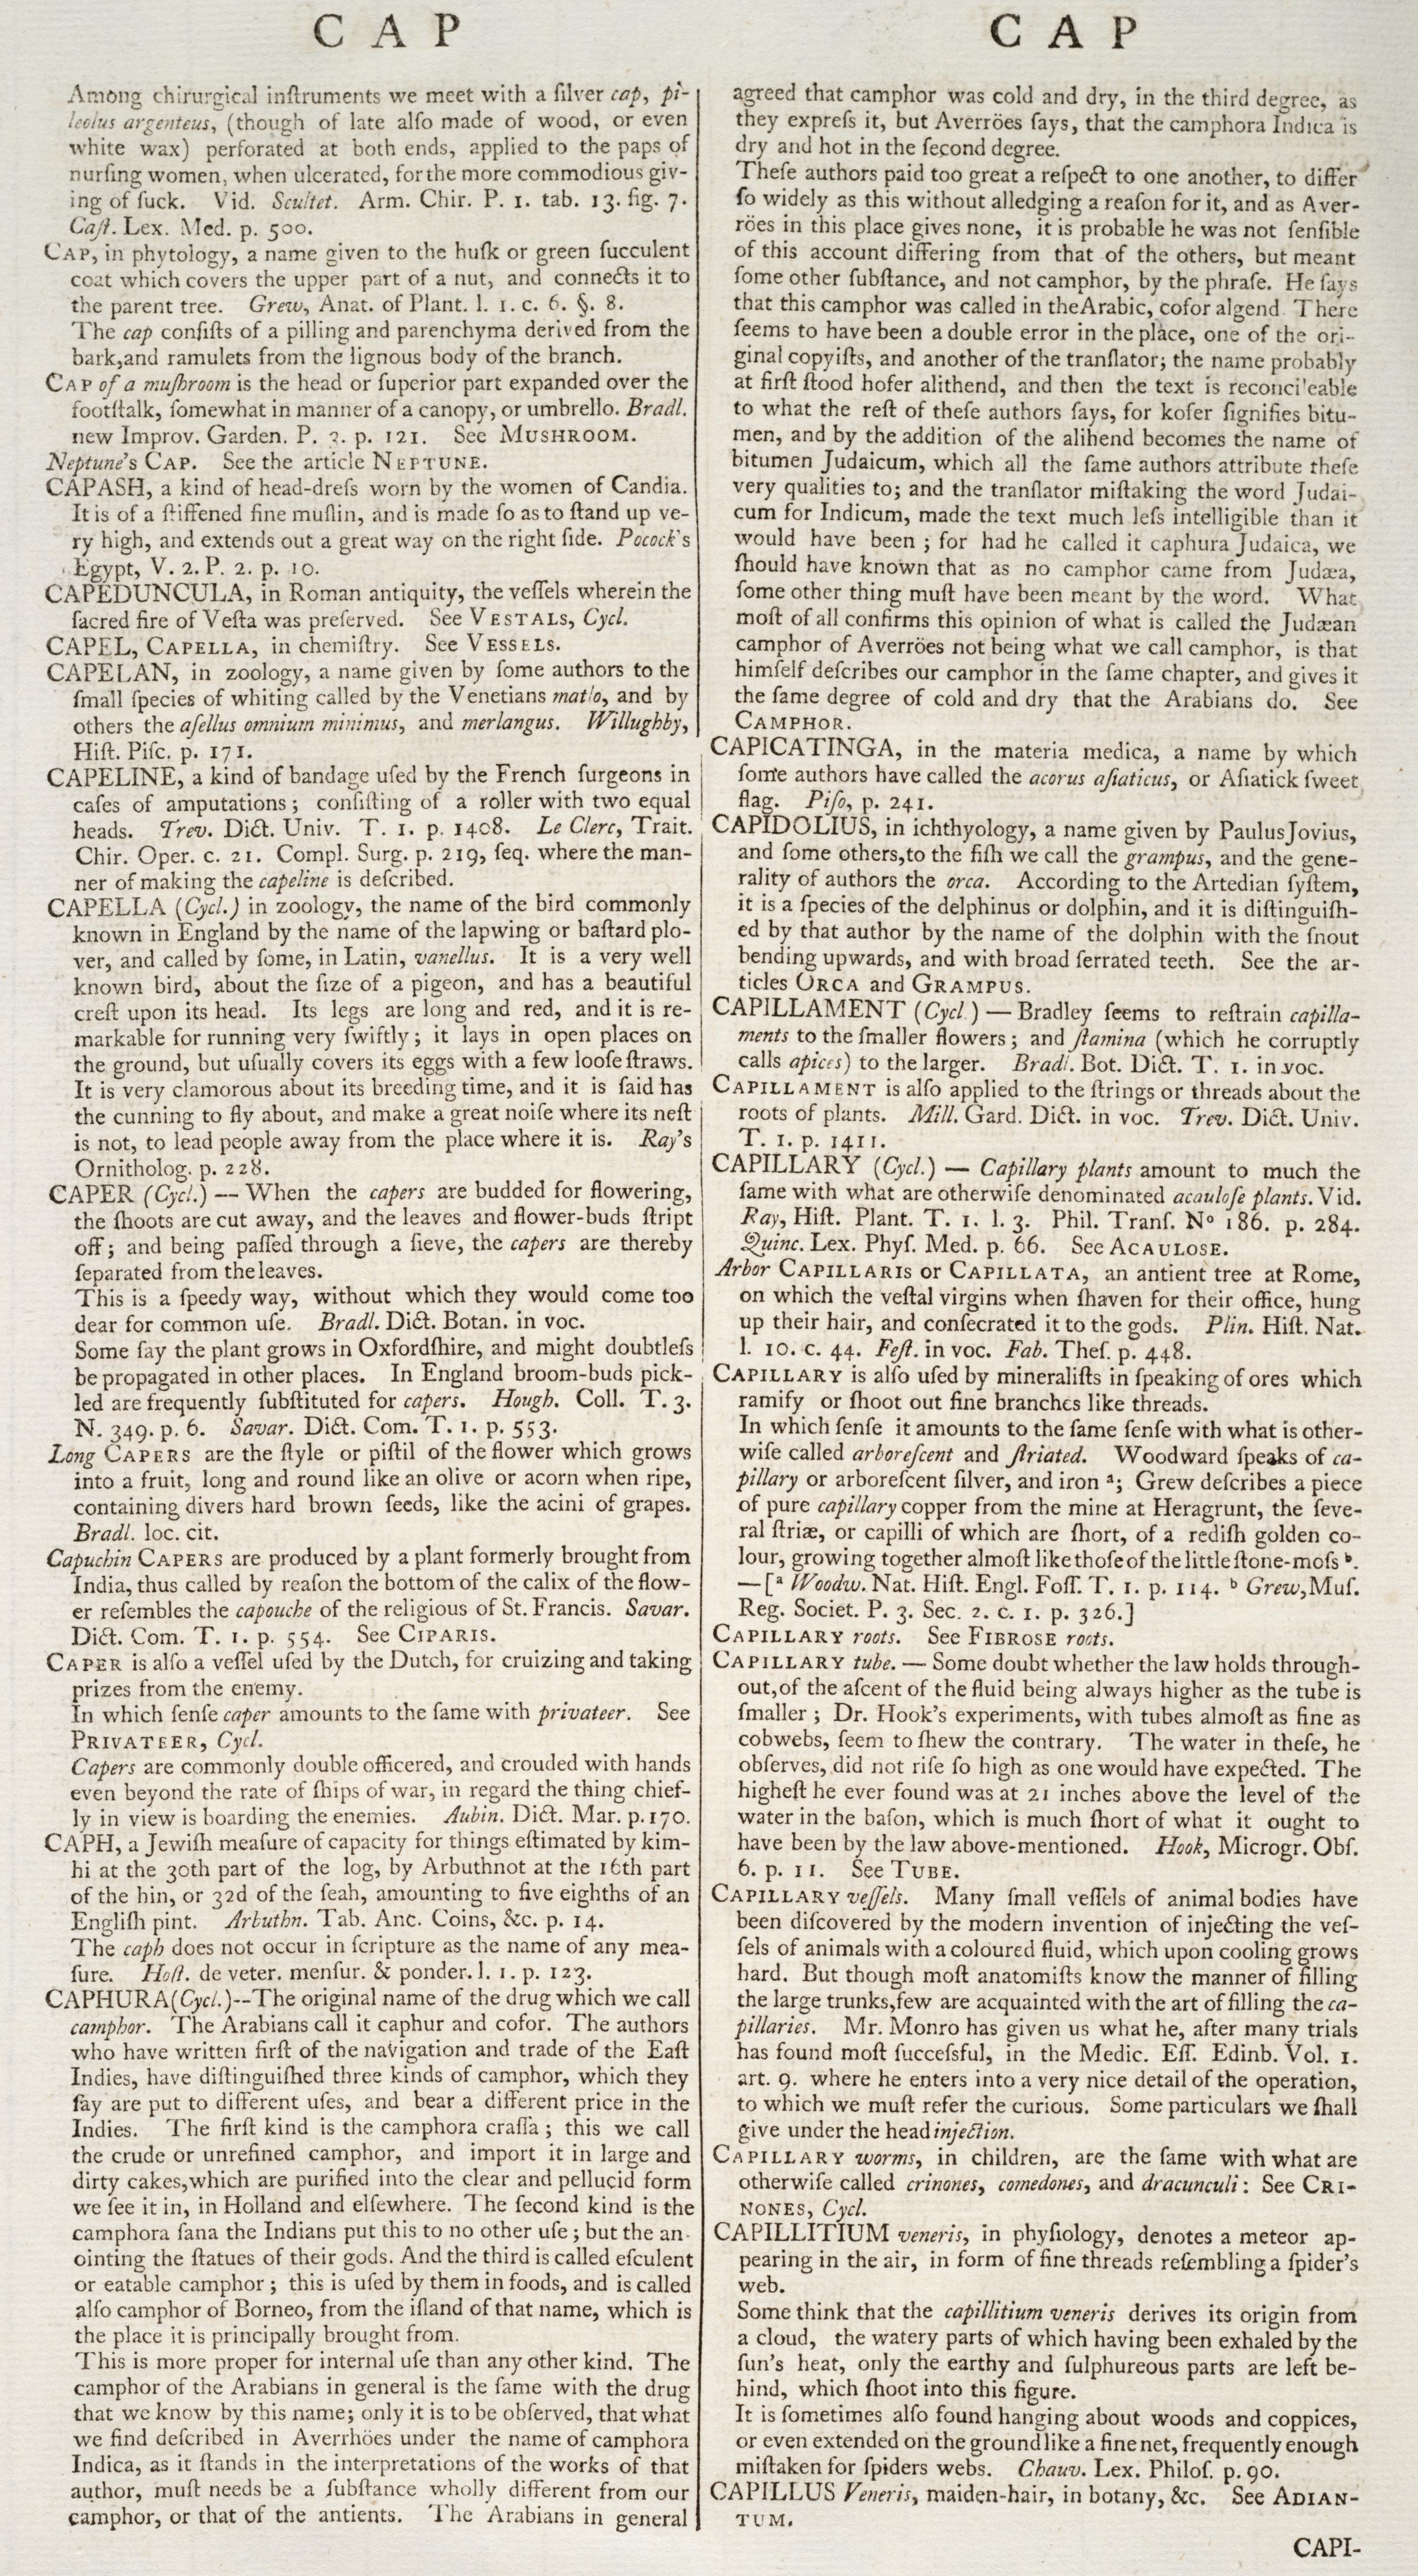 C A P
Among chirurgical inſtruments we meet with a ſilver cap, pi-
leolus argenteus, (though of late alſo made of wood, or even
white wax) perforated at both ends, applied to the paps of
nurſing women, when ulcerated, for the more commodious giv-
ing of ſuck. Vid. Scultet. Arm. Chir. P. 1. tab. 13. fig. 7.
Caſt. Lex. Med. p. 500.
CAP, in phytology, a name given to the huſk or green ſucculent
coat which covers the upper part of a nut, and connects it to
the parent tree. Grew, Anat. of Plant. l. 1. c. 6. §. 8.
The cap conſiſts of a pilling and parenchyma derived from the
bark, and ramulets from the lignous body of the branch.
CAP of a muſhroom is the head or ſuperior part expanded over the
footſtalk, ſomewhat in manner of a canopy, or umbrello. Bradl.
new Improv. Garden. P. 2. p. 121. See MUSHROOM.
Neptune's CAP. See the article NEPTUNE.
CAPASH, a kind of head-dreſs worn by the women of Candia.
It is of a ſtiffened fine muſlin, and is made ſo as to ſtand up ve-
ry high, and extends out a great way on the right ſide. Pocock's
Egypt, V. 2. P. 2. p. 10.
CAPEDUNCULA, in Roman antiquity, the veſſels wherein the
ſacred fire of Veſta was preſerved. See VESTALS, Cycl.
CAPEL, CAPELLA, in chemiſtry. See VESSELS.
CAPELAN, in zoology, a name given by ſome authors to the
ſmall ſpecies of whiting called by the Venetians mollo, and by
others the aſellus omnium minimus, and merlangus. Willughby,
Hiſt. Piſc. p. 171.
CAPELINE, a kind of bandage uſed by the French ſurgeons in
caſes of amputations; conſiſting of a roller with two equal
heads. Trev. Dict. Univ. T. 1. p. 1408. Le Clerc, Trait.
Chir. Oper. c. 21. Compl. Surg. p. 219, ſeq. where the man-
ner of making the capeline is deſcribed.
CAPELLA (Cycl.) in zoology, the name of the bird commonly
known in England by the name of the lapwing or baſtard plo-
ver, and called by ſome, in Latin, vanellus. It is a very well
known bird, about the ſize of a pigeon, and has a beautiful
creſt upon its head. Its legs are long and red, and it is re-
markable for running very ſwiftly; it lays in open places on
the ground, but uſually covers its eggs with a few looſe ſtraws.
It is very clamorous about its breeding time, and it is ſaid has
the cunning to fly about, and make a great noiſe where its neſt
is not, to lead people away from the place where it is. Ray's
Ornitholog. p. 228.
CAPER (Cycl.) — When the capers are budded for flowering,
the ſhoots are cut away, and the leaves and flower-buds ſtript
off; and being paſſed through a ſieve, the capers are thereby
ſeparated from the leaves.
This is a ſpeedy way, without which they would come too
dear for common uſe. Bradl. Dict. Botan. in voc.
Some ſay the plant grows in Oxfordſhire, and might doubtleſs
be propagated in other places. In England broom-buds pick-
led are frequently ſubſtituted for capers. Hough. Coll. T. 3.
N. 349. p. 6. Savar. Dict. Com. T. 1. p. 553.
Long CAPERS are the ſtyle or piſtil of the flower which grows
into a fruit, long and round like an olive or acorn when ripe,
containing divers hard brown ſeeds, like the acini of grapes.
Bradl. loc. cit.
Capuchin CAPERS are produced by a plant formerly brought from
India, thus called by reaſon the bottom of the calix of the flow-
er reſembles the capouche of the religious of St. Francis. Savar.
Dict. Com. T. 1. p. 554. See CIPARIS.
CAPER is alſo a veſſel uſed by the Dutch, for cruizing and taking
prizes from the enemy.
In which ſenſe caper amounts to the ſame with privateer. See
PRIVATEER, Cycl.
Capers are commonly double officered, and crouded with hands
even beyond the rate of ſhips of war, in regard the thing chief-
ly in view is boarding the enemies. Aubin. Dict. Mar. p. 170.
CAPH, a Jewiſh meaſure of capacity for things eſtimated by kim-
hi at the 30th part of the log, by Arbuthnot at the 16th part
of the hin, or 32d of the ſeah, amounting to five eighths of an
Engliſh pint. Arbuthn. Tab. Anc. Coins, &c. p. 14.
The caph does not occur in ſcripture as the name of any mea-
ſure. Hoſt. de veter. menſur. & ponder. l. 1. p. 123.
CAPHURA (Cycl.)--The original name of the drug which we call
camphor. The Arabians call it caphur and cofor. The authors
who have written firſt of the navigation and trade of the Eaſt
Indies, have diſtinguiſhed three kinds of camphor, which they
ſay are put to different uſes, and bear a different price in the
Indies. The firſt kind is the camphora craſſa; this we call
the crude or unrefined camphor, and import it in large and
dirty cakes, which are purified into the clear and pellucid form
we ſee it in, in Holland and elſewhere. The ſecond kind is the
camphora ſana the Indians put this to no other uſe; but the an-
ointing the ſtatues of their gods. And the third is called eſculent
or eatable camphor; this is uſed by them in foods, and is called
alſo camphor of Borneo, from the iſland of that name, which is
the place it is principally brought from.
This is more proper for internal uſe than any other kind. The
camphor of the Arabians in general is the ſame with the drug
that we know by this name; only it is to be obſerved, that what
we find deſcribed in Averrhöes under the name of camphora
Indica, as it ſtands in the interpretations of the works of that
author, muſt needs be a ſubſtance wholly different from our
camphor, or that of the antients. The Arabians in general
C A P
agreed that camphor was cold and dry, in the third degree, as
they expreſs it, but Averröes ſays, that the camphora Indica is
dry and hot in the ſecond degree.
Theſe authors paid too great a reſpect to one another, to differ
ſo widely as this without alledging a reaſon for it, and as Aver-
röes in this place gives none, it is probable he was not ſenſible
of this account differing from that of the others, but meant
ſome other ſubſtance, and not camphor, by the phraſe. He ſays
that this camphor was called in the Arabic, cofor algend There
ſeems to have been a double error in the place, one of the ori-
ginal copyiſts, and another of the tranſlator; the name probably
at firſt ſtood hofer alithend, and then the text is reconcileable
to what the reſt of theſe authors ſays, for kofer ſignifies bitu-
men, and by the addition of the alihend becomes the name of
bitumen Judaicum, which all the ſame authors attribute theſe
very qualities to; and the tranſlator miſtaking the word Judai-
cum for Indicum, made the text much leſs intelligible than it
would have been; for had he called it caphura Judaica, we
ſhould have known that as no camphor came from Judæa,
ſome other thing muſt have been meant by the word. What
moſt of all confirms this opinion of what is called the Judæan
camphor of Averröes not being what we call camphor, is that
himſelf deſcribes our camphor in the ſame chapter, and gives it
the ſame degree of cold and dry that the Arabians do. See
CAMPHOR.
CAPICATINGA, in the materia medica, a name by which
ſome authors have called the acorus aſiaticus, or Aſiatick ſweet
flag. Piſo, p. 241.
CAPIDOLIUS, in ichthyology, a name given by Paulus Jovius,
and ſome others, to the fiſh we call the grampus, and the gene-
rality of authors the orca. According to the Artedian ſyſtem,
it is a ſpecies of the delphinus or dolphin, and it is diſtinguiſh-
ed by that author by the name of the dolphin with the ſnout
bending upwards, and with broad ſerrated teeth. See the ar-
ticles ORCA and GRAMPUS.
CAPILLAMENT (Cycl.) — Bradley ſeems to reſtrain capilla-
ments to the ſmaller flowers; and ſtamina (which he corruptly
calls apices) to the larger. Bradl. Bot. Dict. T. 1. in voc.
CAPILLAMENT is alſo applied to the ſtrings or threads about the
roots of plants. Mill. Gard. Dict. in voc. Trev. Dict. Univ.
T. 1. p. 1411.
CAPILLARY (Cycl.) — Capillary plants amount to much the
ſame with what are otherwiſe denominated acauloſe plants. Vid.
Ray, Hiſt. Plant. T. 1. l. 3. Phil. Tranſ. Nº 186. p. 284.
Quinc. Lex. Phyſ. Med. p. 66. See ACAULOSE.
Arbor CAPILLARIS or CAPILLATA, an antient tree at Rome,
on which the veſtal virgins when ſhaven for their office, hung
up their hair, and conſecrated it to the gods. Plin. Hiſt. Nat.
l. 10. c. 44. Feſt. in voc. Fab. Theſ. p. 448.
CAPILLARY is alſo uſed by mineraliſts in ſpeaking of ores which
ramify or ſhoot out fine branches like threads.
In which ſenſe it amounts to the ſame ſenſe with what is other-
wiſe called arboreſcent and ſtriated. Woodward ſpeaks of ca-
pillary or arboreſcent ſilver, and iron ª; Grew deſcribes a piece
of pure capillary copper from the mine at Heragrunt, the ſeve-
ral ſtriæ, or capilli of which are ſhort, of a rediſh golden co-
lour, growing together almoſt like thoſe of the little ſtone-moſs ᵇ.
—[ª Woodw. Nat. Hiſt. Engl. Foſſ. T. 1. p. 114. ᵇ Grew, Muſ.
Reg. Societ. P. 3. Sec. 2. c. 1. p. 326.]
CAPILLARY roots. See FIBROSE roots.
CAPILLARY tube. — Some doubt whether the law holds through-
out, of the aſcent of the fluid being always higher as the tube is
ſmaller; Dr. Hook's experiments, with tubes almoſt as fine as
cobwebs, ſeem to ſhew the contrary. The water in theſe, he
obſerves, did not riſe ſo high as one would have expected. The
higheſt he ever found was at 21 inches above the level of the
water in the baſon, which is much ſhort of what it ought to
have been by the law above-mentioned. Hook, Microgr. Obſ.
6. p. 11. See TUBE.
CAPILLARY veſſels. Many ſmall veſſels of animal bodies have
been diſcovered by the modern invention of injecting the veſ-
ſels of animals with a coloured fluid, which upon cooling grows
hard. But though moſt anatomiſts know the manner of filling
the large trunks, few are acquainted with the art of filling the ca-
pillaries. Mr. Monro has given us what he, after many trials
has found moſt ſucceſsful, in the Medic. Eſſ. Edinb. Vol. 1.
art. 9. where he enters into a very nice detail of the operation,
to which we muſt refer the curious. Some particulars we ſhall
give under the head injection.
CAPILLARY worms, in children, are the ſame with what are
otherwiſe called crinones, comedones, and dracunculi: See CRI-
NONES, Cycl.
CAPILLITIUM veneris, in phyſiology, denotes a meteor ap-
pearing in the air, in form of fine threads reſembling a ſpider's
web.
Some think that the capillitium veneris derives its origin from
a cloud, the watery parts of which having been exhaled by the
ſun's heat, only the earthy and ſulphureous parts are left be-
hind, which ſhoot into this figure.
It is ſometimes alſo found hanging about woods and coppices,
or even extended on the ground like a fine net, frequently enough
miſtaken for ſpiders webs. Chauv. Lex. Philoſ. p. 90.
CAPILLUS Veneris, maiden-hair, in botany, &c. See ADIAN-
TUM.
CAPI-